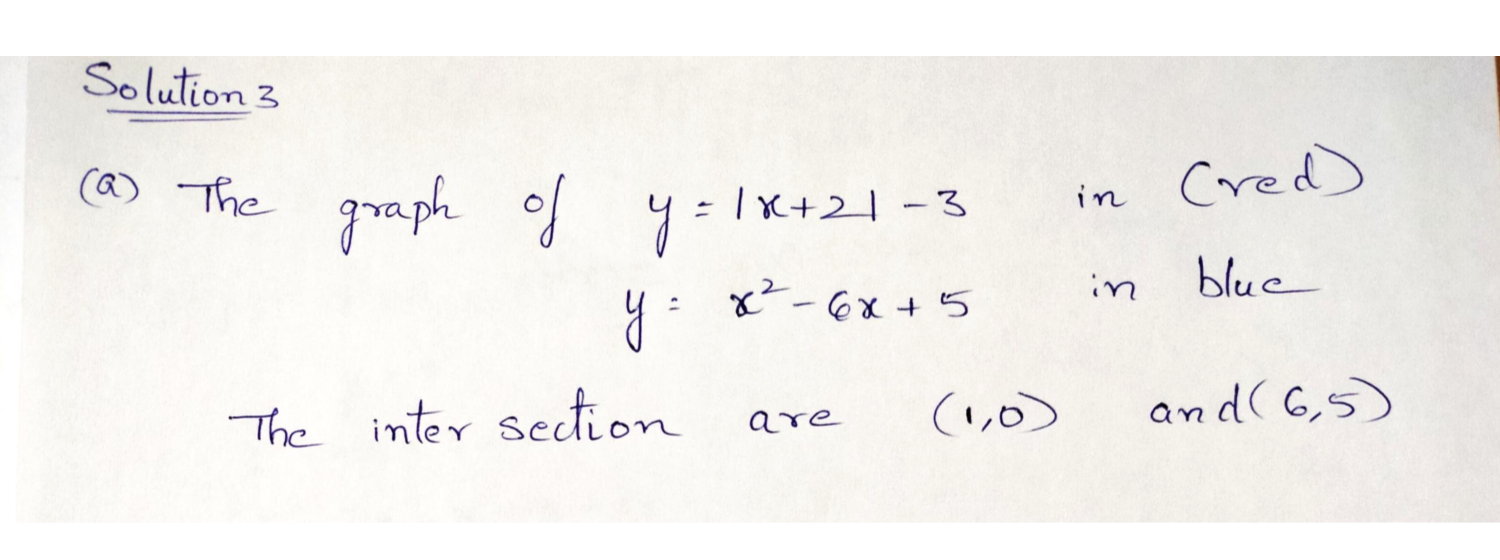 Solution 3
(a) The graph of y = |x+2| - 3 in (red)
y = x² - 6x + 5 in blue
The inter section are (1,0) and (6,5)